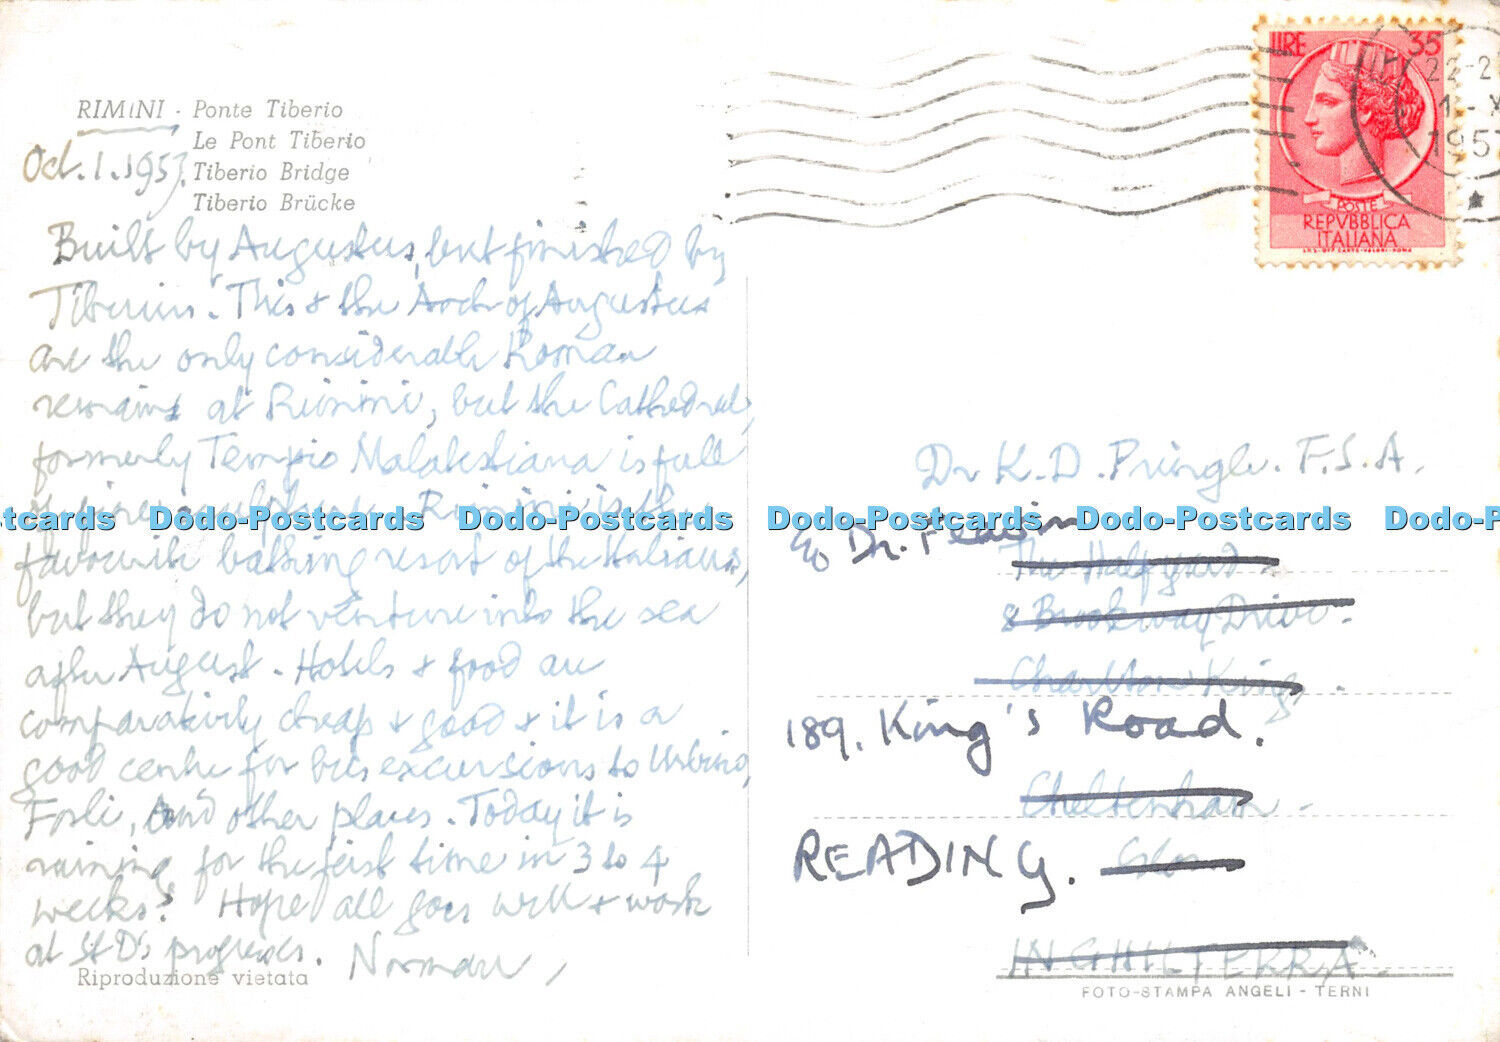 RIMINI - Ponte Tiberio
Le Pont Tiberio
Tiberio Bridge
Tiberio Brücke
Oct. 1. 1957.
Built by Augustus, but finished by
Tiberius. This & the Arch of Augustus
are the only considerable Roman
remains at Rimini, but the Cathedral,
formerly Tempio Malatestiana is full
Rimini is the
favourite bathing resort of the Italians,
but they do not venture into the sea
after August. Hotels & food are
comparatively cheap & good & it is a
good centre for bus excursions to Urbino,
Forli, and other places. Today it is
raining for the first time in 3 to 4
weeks! Hope all goes well & work
at St D's progresses. Norman
Riproduzione vietata
LIRE 35
POSTE
REPVBBLICA
ITALIANA
22-2
1-X
1957
Dr K. D. Pringle. F.S.A.
c/o Dr.
The Halfyard
8 Brookway Drive.
Charlton Kings.
189, King's Road.
Cheltenham
READING. Glos
INGHILTERRA.
FOTO-STAMPA ANGELI - TERNI
Dodo-Postcards Dodo-Postcards Dodo-Postcards Dodo-Postcards